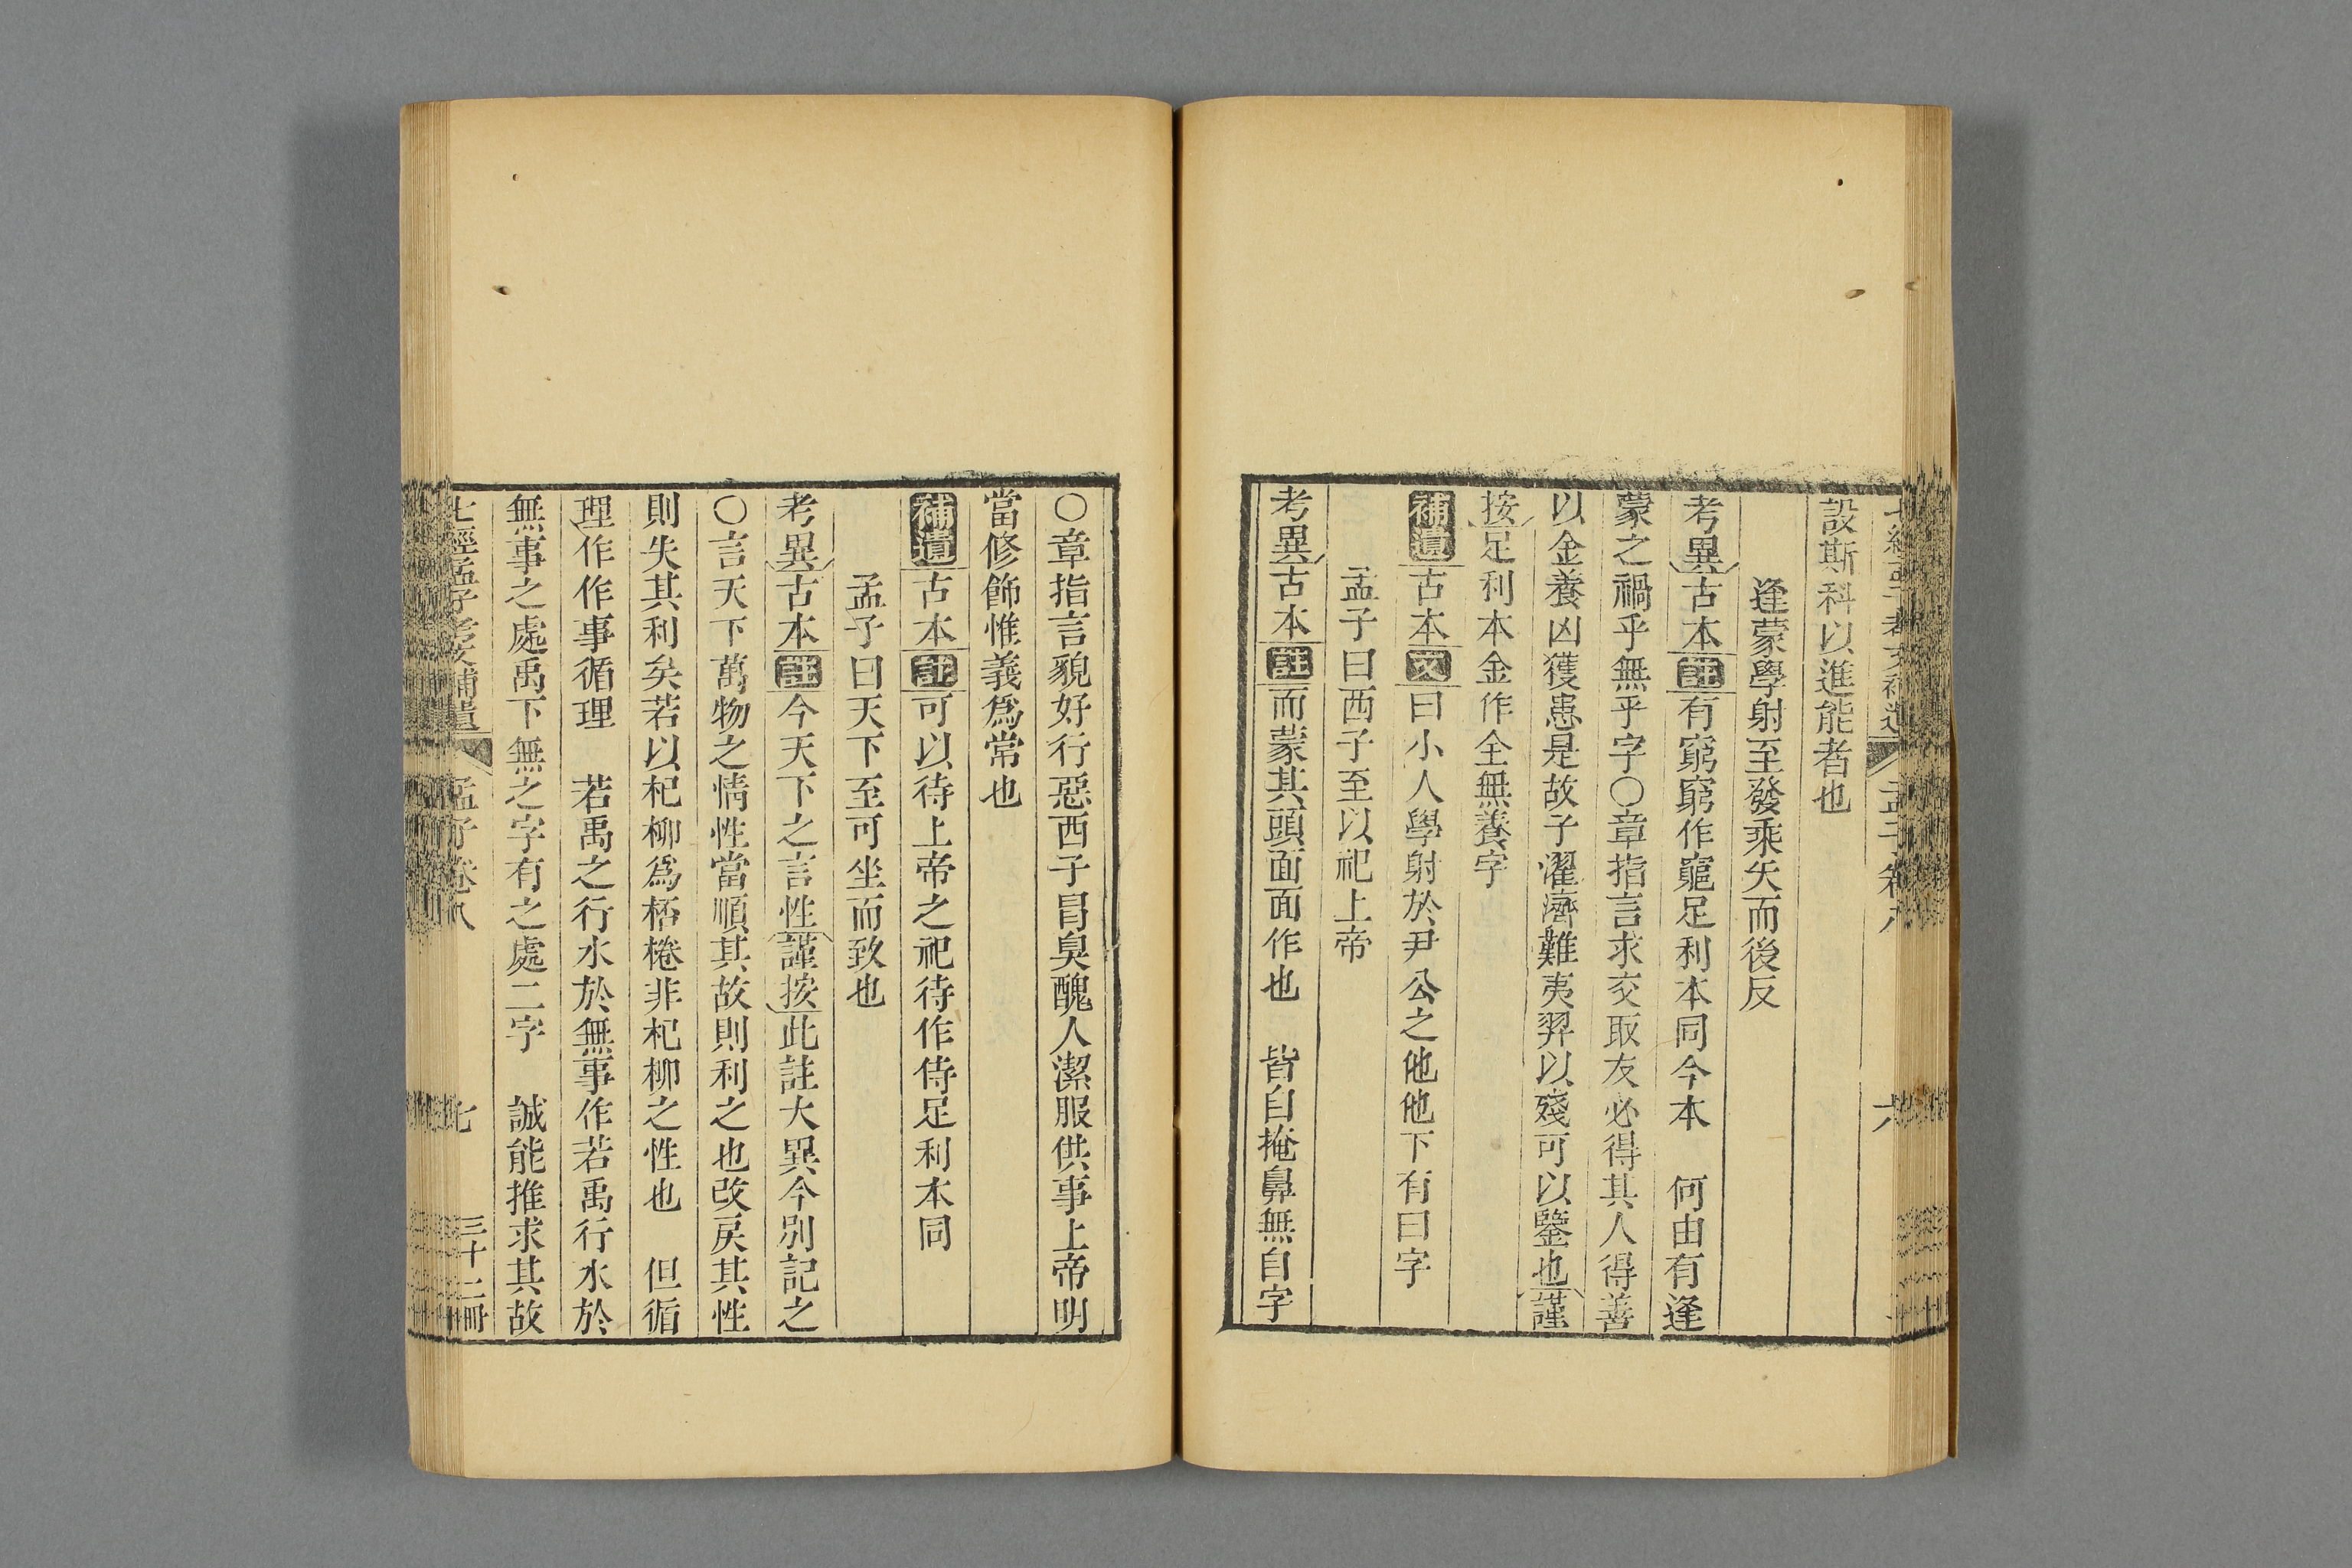 設斯科以進能者也
逢蒙學射至發乘矢而後反
考異古本註有窮窮作竆足利本同今本　何由有逢
蒙之禍乎無乎字○章指言求交取友必得其人得善
以金養凶獲患是故子濯濟難夷羿以殘可以鑒也謹
按足利本金作全無養字
補遺古本文曰小人學射於尹公之他他下有曰字
孟子曰西子至以祀上帝
考異古本註而蒙其頭面面作也　皆自掩鼻無自字
○章指言貌好行惡西子冒臭醜人潔服供事上帝明
當修飾惟義爲常也
補遺古本註可以待上帝之祀待作侍足利本同
孟子曰天下至可坐而致也
考異古本註今天下之言性謹按此註大異今別記之
○言天下萬物之情性當順其故則利之也改戾其性
則失其利矣若以杞柳爲桮棬非杞柳之性也　但循
理作作事循理　若禹之行水於無事作若禹行水於
無事之處禹下無之字有之處二字　誠能推求其故
七經孟子考文補遺　孟子卷八　七　三十二冊